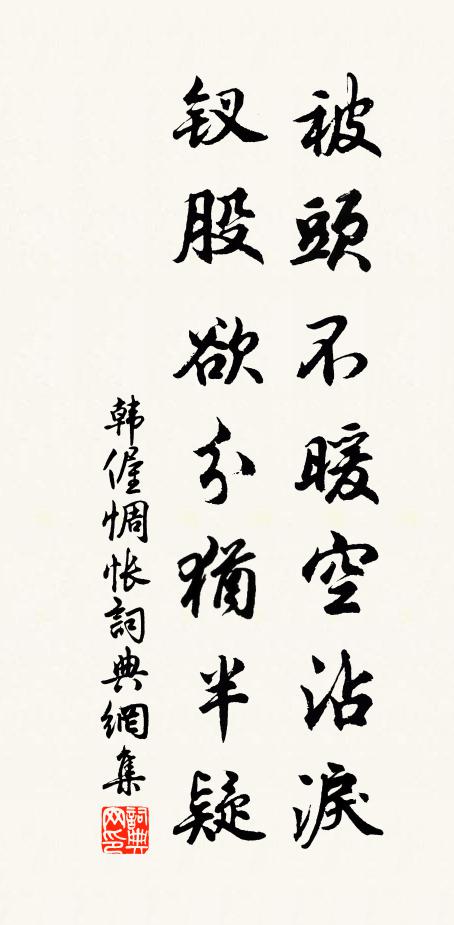 被頭不暖空沾淚
钗股欲分猶半疑
韩偓惆怅詞典網集
詞典网印